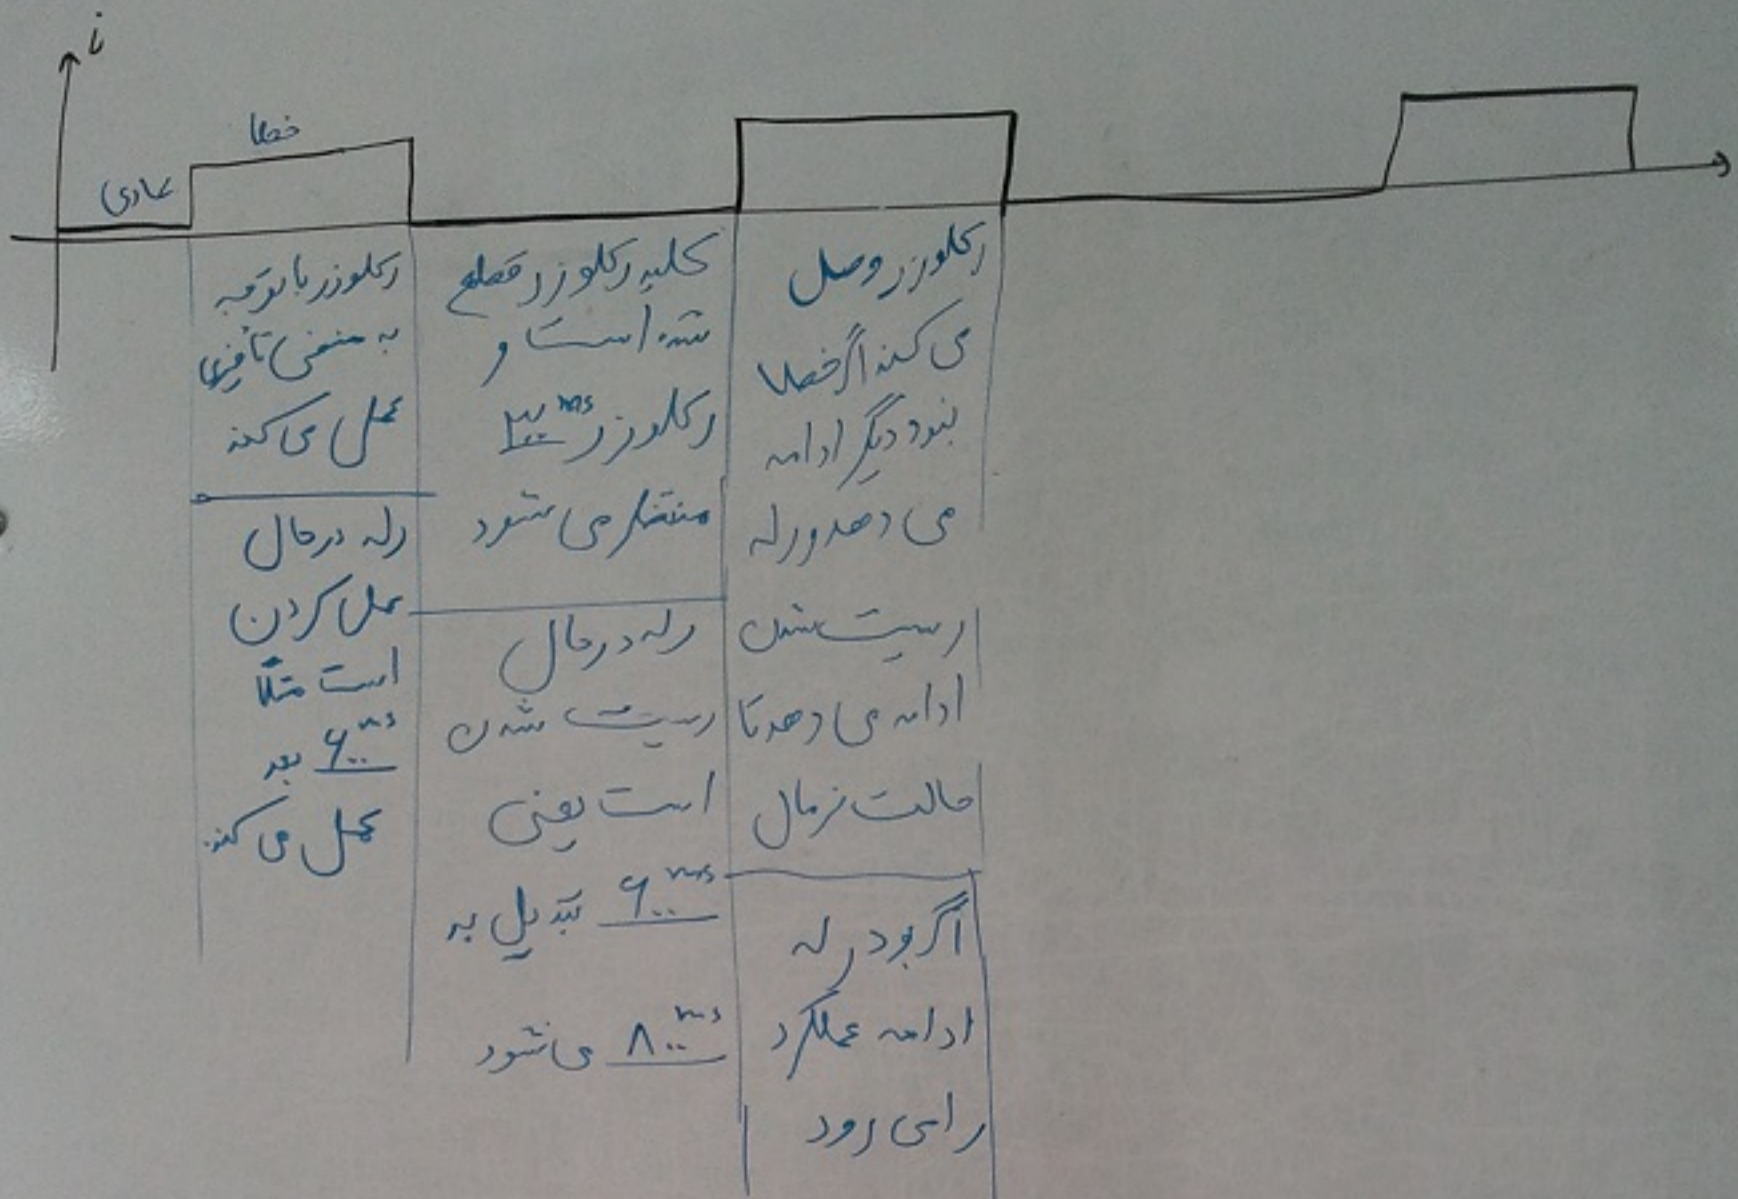 i
خطا
عادی
رکلوزر با توجه
به منحنی تأخیری
عمل می کند
رله در حال
عمل کردن
است مثلاً
۶۰۰ ms بعد
عمل می کند.
کلید رکلوزر قطع
شده است و
رکلوزر ۳۰۰ ms
منتظر می شود
رله در حال
ریست شدن
است یعنی
۶۰۰ ms تبدیل به
۸۰۰ ms می شود
رکلوزر وصل
می کند اگر خطا
نبود دیگر ادامه
می دهد و رله
ریست شدن
ادامه می دهد تا
حالت نرمال
اگر بود رله
ادامه عملکرد
را می رود